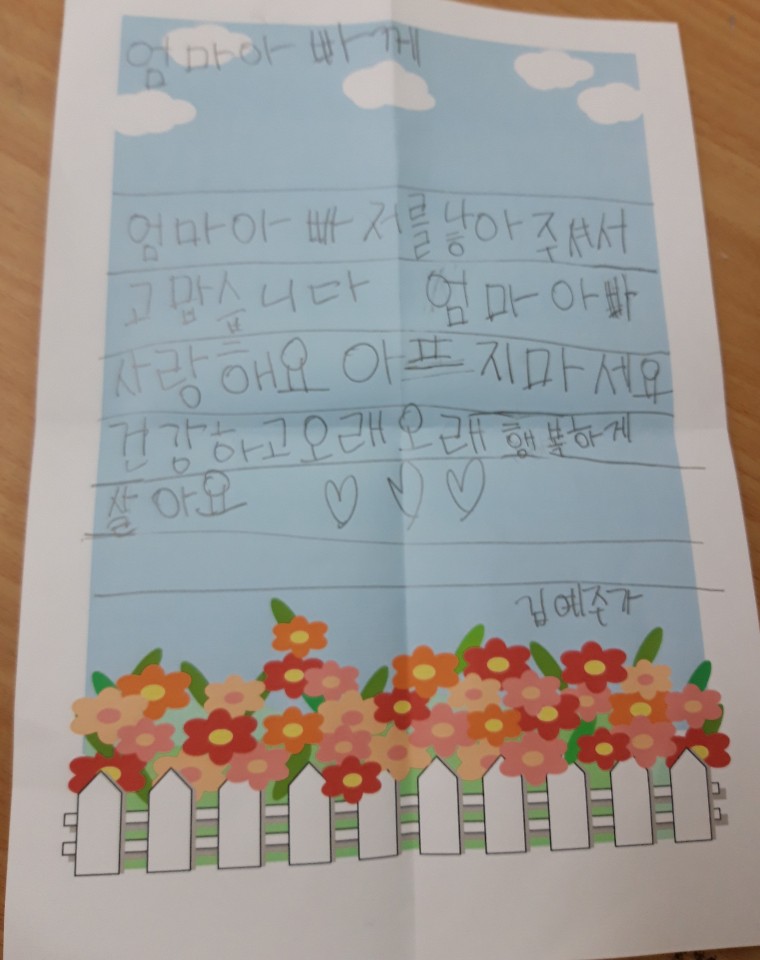 엄마아빠께
엄마아빠 저를 낳아 주셔서
고맙습니다 엄마아빠
사랑해요 아프지마세요
건강하고 오래오래 행복하게
살아요 ♡♡♡
김예주가